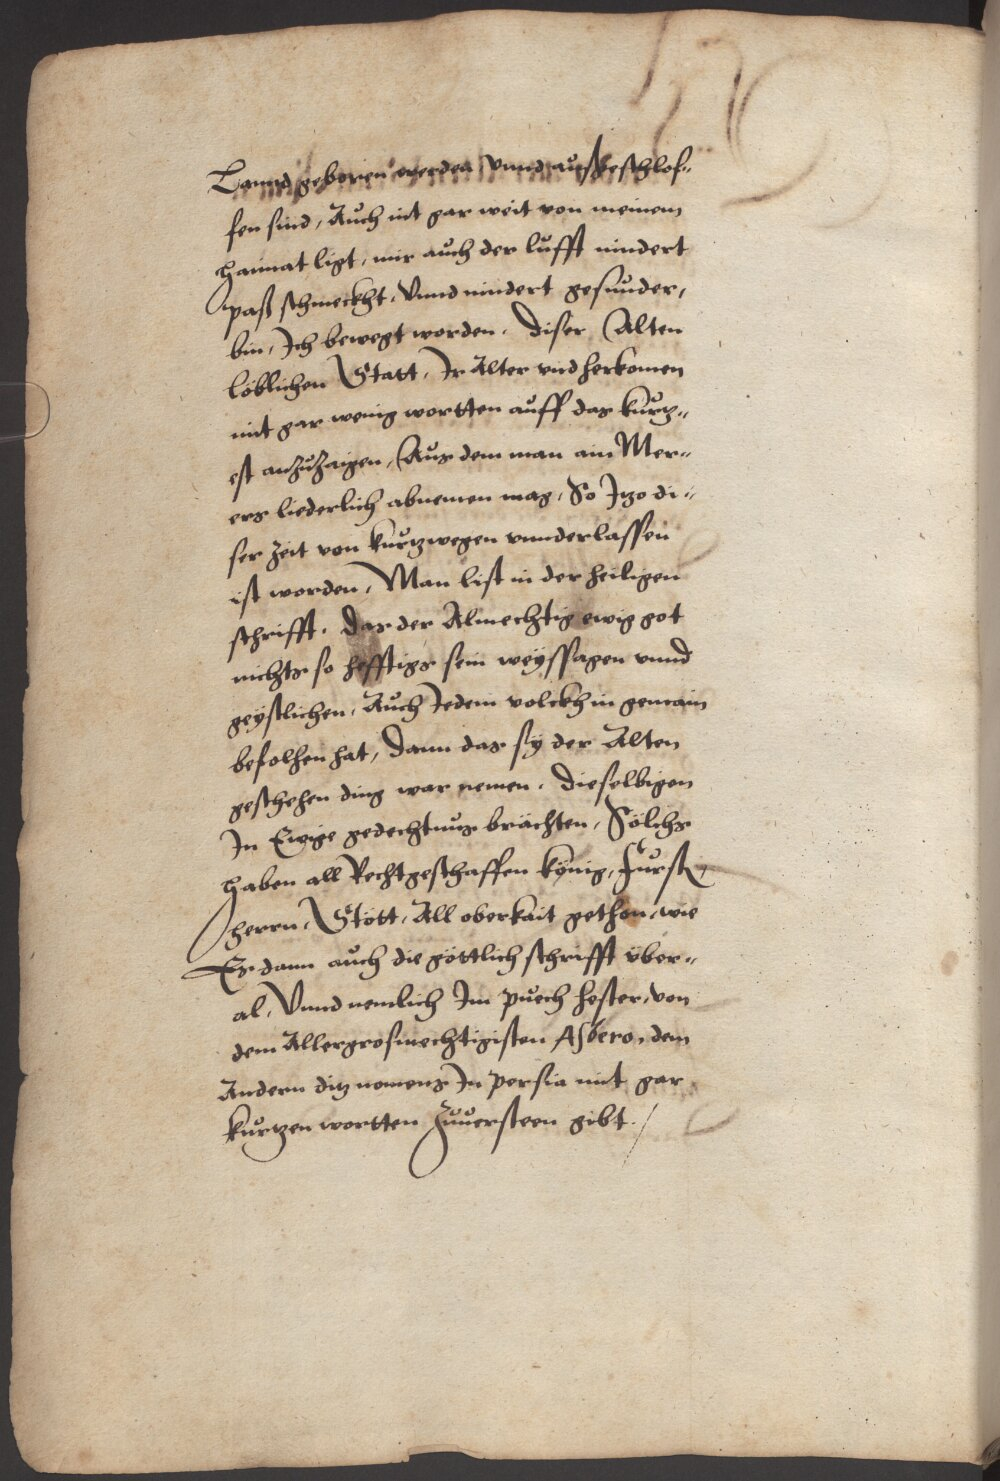 Lannd geboren werden, vnnd außgeschlof-
fen sind, Auch nit gar weit von meinem
haimat ligt, mir auch der lufft nindert
paß schmeckht, Vnnd nindert gesunder,
bin, Ich bewegt worden, diser Alten
löblichen Statt, Ir Alter vnd herkomen
mit gar wenig wortten auff das kurtz-
est anzuzaigen, Aus dem man ain Mer-
ers liederlich abnemen mag, So Itzo di-
ser zeit von kurtzwegen vnnderlassen
ist worden, Man list in der heiligen
schrifft, das der Almechtig ewig got
nichts so hefftigs sein weyssagen vnnd
geystlichen, Auch Jedem volckh in gemain
befolhen hat, dann das sy der Alten
geschehen ding war nemen, dieselbigen
In Ewige gedechtnus brächten, Sölichs
haben all Rechtgeschaffen König, Fürst,
herrn, Stött, All oberkait gethon, wie
Es dann auch die göttlich schrifft vber-
al, Vnnd nemlich Im puech hester, von
dem Allergrosmechtigisten Asßero, dem
Andern ditz nomens In persia mit gar
kurtzen wortten zuuersteen gibt./